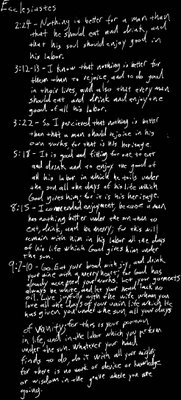 Ecclesiastes
2:24 - Nothing is better for a man than
that he should eat and drink, and
that his soul should enjoy good in
his labor.
3:12-13 - I know that nothing is better for
them than to rejoice, and to do good
in their lives, and also that every man
should eat and drink and enjoy the
good of all his labor.
3:22 - So I perceived that nothing is better
than that a man should rejoice in his
own works for that is his heritage.
5:18 - It is good and fitting for one to eat
and drink and to enjoy the good of
all his labor in which he toils under
the sun all the days of his life which
God gives him; for it is his heritage.
8:15 - I commended enjoyment, because a man
has nothing better under the sun than to
eat, drink, and be merry; for this will
remain with him in his labor all the days
of his life which God gives him under
the sun.
9:7-10 - Go. Eat your bread with joy, and drink
your wine with a merry heart; for God has
already accepted your works. Let your garments
always be white, and let your head lack no
oil. Live joyfully with the wife whom you
love all the days of your vain life which He
has given you under the sun, all your days
of vanity; for this is your portion
in life, and in the labor which you perform
under the sun. Whatever your hand
finds to do, do it with all your might,
for there is no work or device or knowledge
or wisdom in the grave where you are
going.